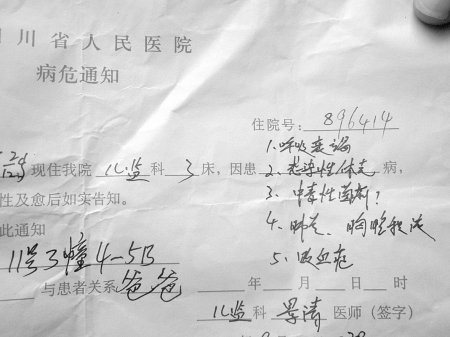 川省人民医院
病危通知
住院号：896414
1.呼吸衰竭
现住我院儿监科3床，因患2、感染性休克病，
性及愈后如实告知。3、中毒性菌痢？
此通知4、肺炎、胸腔积液
11号3幢4-5B 5、败血症
与患者关系爸爸 年 月 日 时
儿监科 景清 医师（签字）